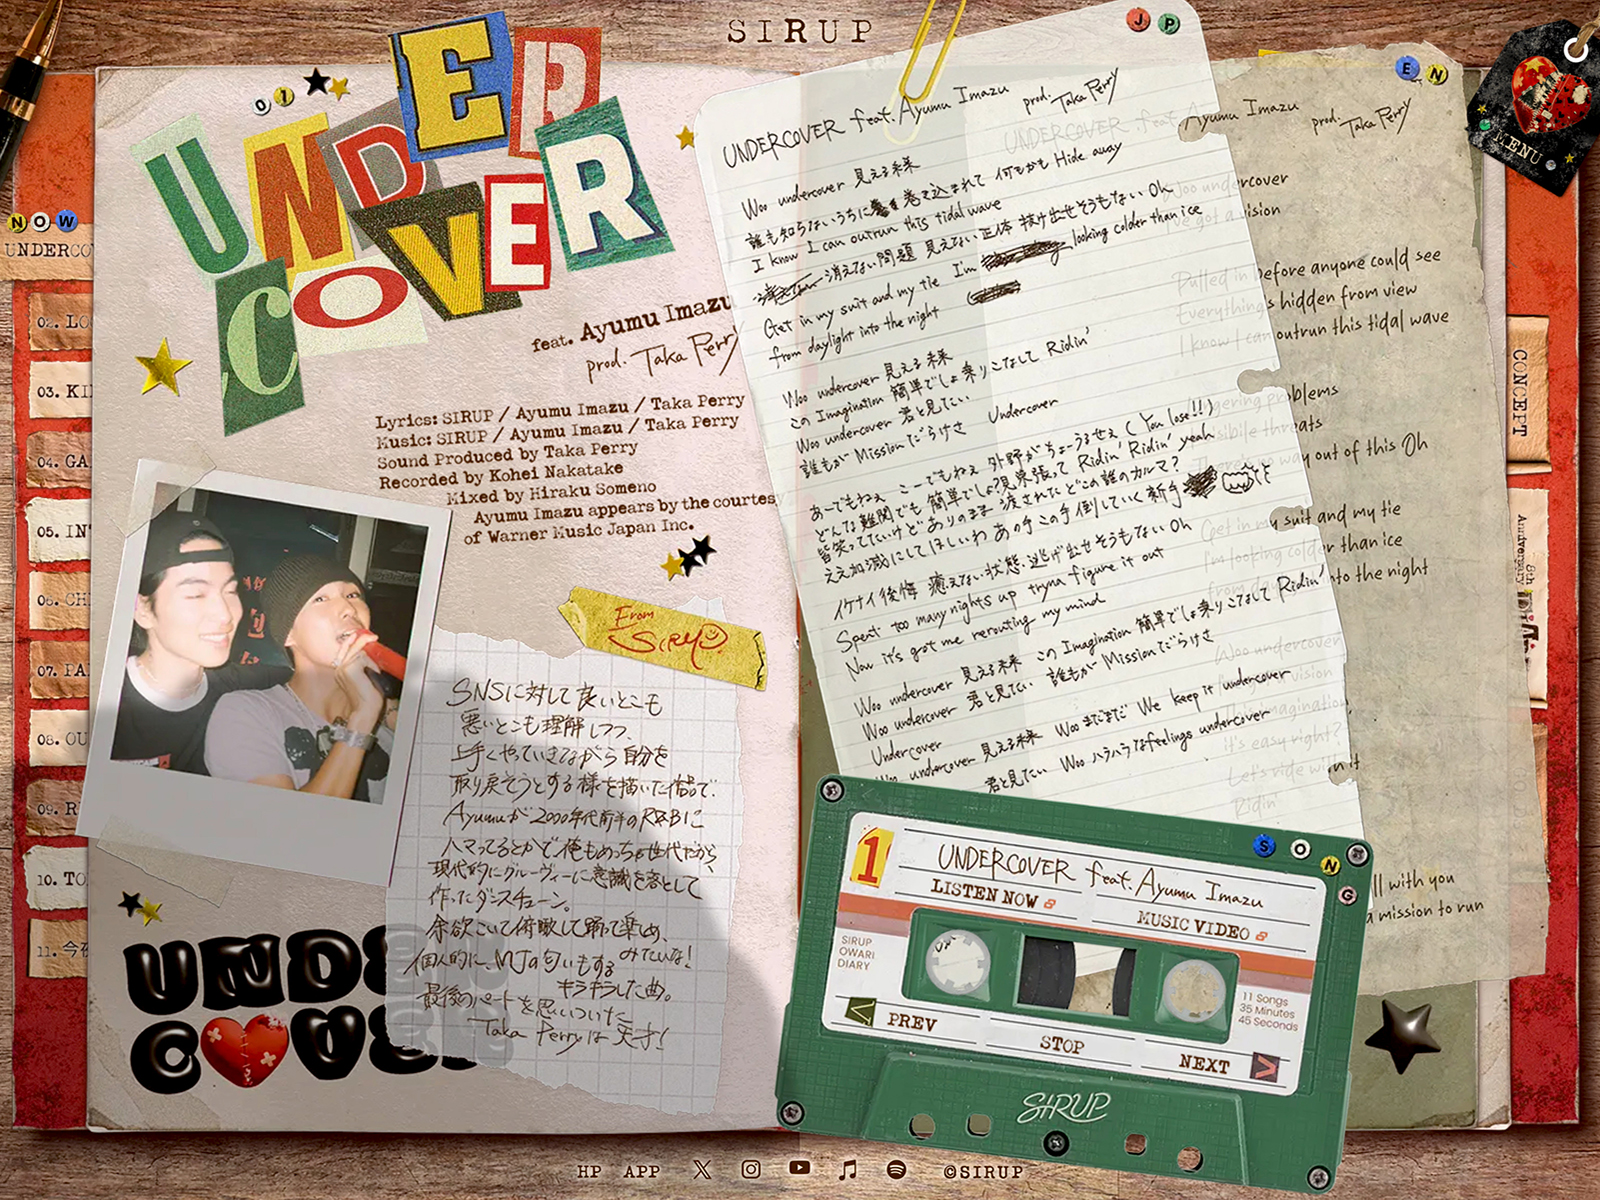 SIRUP
J P
E N
MENU
01
UNDER
COVER
feat. Ayumu Imazu
prod. Taka Perry
Lyrics: SIRUP / Ayumu Imazu / Taka Perry
Music: SIRUP / Ayumu Imazu / Taka Perry
Sound Produced by Taka Perry
Recorded by Kohei Nakatake
Mixed by Hiraku Someno
Ayumu Imazu appears by the courtesy
of Warner Music Japan Inc.
NOW
UNDERCO
02. LO
03. KI
04. GA
05. IN
06. CH
07. PA
08. OU
09. R
10. TO
11. 今
From
SIRUP
SNSに対して良いとこも
悪いとこも理解しつつ、
上手くやっていきながら自分を
取り戻そうとする様を描いた作品で、
Ayumuが2000年代前半のR&Bに
ハマってるとかで俺もめっちゃ世代だから
現代的にグルーヴィーに意識を落として
作ったダンスチューン。
余欲こいて俯瞰して踊って楽しめ、
みたいな!
個人的に、MJの匂いもする
キラキラした曲。
最後のパートを思いついた
Taka Perryは天才!
UNDE
COVE
UNDERCOVER feat. Ayumu Imazu prod. Taka Perry
Woo undercover 見える未来
誰も知らないうちに 巻き込まれて 何もかも Hide away
I know I can outrun this tidal wave
消えない問題 見えない正体 抜け出せそうもない Oh
Get in my suit and my tie I'm looking colder than ice
from daylight into the night
Woo undercover 見える未来
この Imagination 簡単でしょ 乗りこなして Ridin'
Woo undercover 君と見たい Undercover
誰もが Mission だらけさ
あーでもねぇ こーでもねぇ 外野がちょーうるせぇ (You lose!!)
どんな難関でも 簡単でしょ? 見栄張って Ridin' Ridin' yeah
皆笑ってたいけど ありのまま 渡されたどこの誰のカルマ?
ええ加減にしてほしいわ あの手この手 倒していく新手
イケナイ後悔 癒えない状態 逃げ出せそうもない Oh
Spent too many nights up tryna figure it out
Now it's got me rerouting my mind
Woo undercover 見える未来 この Imagination 簡単でしょ 乗りこなして Ridin'
Woo undercover 君と見たい 誰もが Mission だらけさ
Undercover Woo まだまだ We keep it undercover
Woo undercover 見える未来 Woo ハラハラな feelings undercover
君と見たい
UNDERCOVER feat. Ayumu Imazu prod. Taka Perry
Woo undercover
I've got a vision
Pulled in before anyone could see
Everything's hidden from view
I know I can outrun this tidal wave
Lingering problems
Invisible threats
There's no way out of this Oh
Get in my suit and my tie
I'm looking colder than ice
from daylight into the night
Woo undercover
vision
This imagination
it's easy right?
Let's ride with it
Ridin'
ll with you
a mission to run
CONCEPT
Anniversary 8th
SONG
1
UNDERCOVER feat. Ayumu Imazu
LISTEN NOW
MUSIC VIDEO
SIRUP
OWARI
DIARY
11 Songs
35 Minutes
45 Seconds
< PREV
STOP
NEXT >
SIRUP
HP APP ©SIRUP